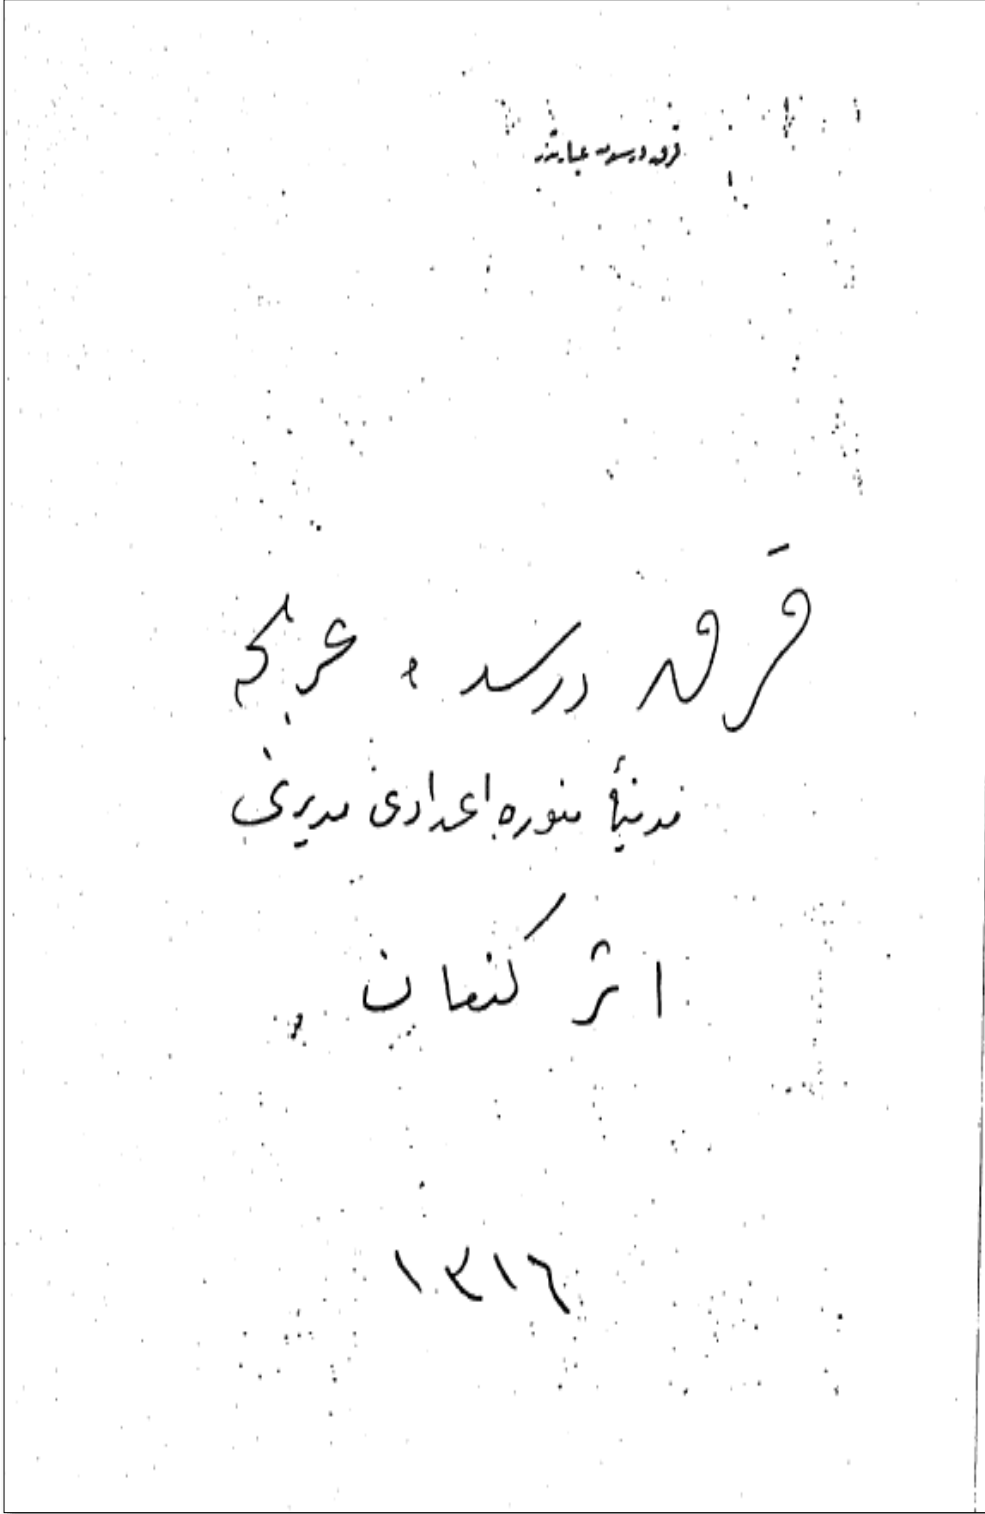 قرق درسد عبارتدر
قرق درسده عربجه
مدینهٔ منوره اعدادی مدیری
اثر کنعان
١٣١٦